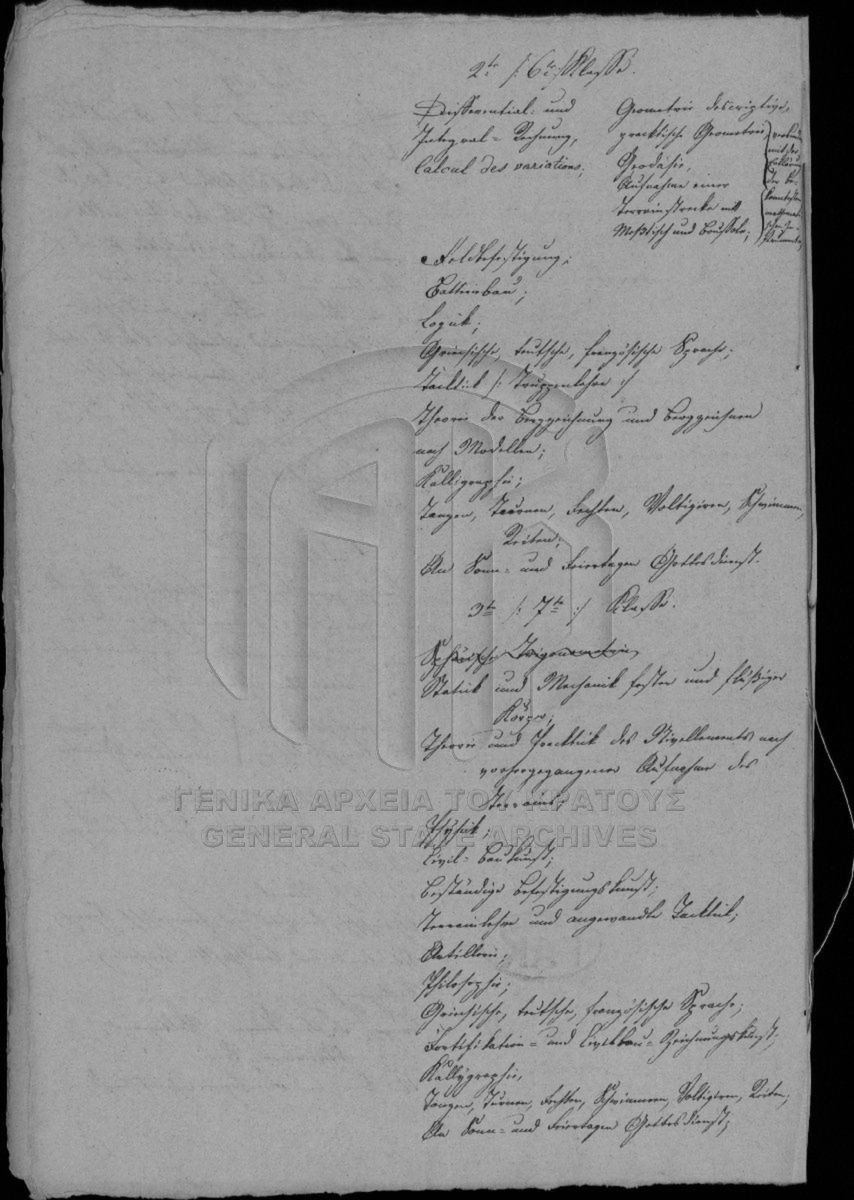 2te /: 6te :/ Klasse.
Differential- und
Integral-Rechnung,
Calcul des variations;
Geometrie descriptive,
practische Geometrie,
Geodäsie,
Aufnahme einer
Terrainstrecke mit
Meßtisch und Boussole;
mit der
der be-
kanntesten
Feldbefestigung;
Batteriebau;
Logik;
Griechische, teutsche, französische Sprache;
Tacktik /: Truppenlehre :/
Theorie der Bergzeichnung und Bergzeichnen
nach Modellen;
Kalligraphie;
Tanzen, Turnen, Fechten, Voltigiren, Schwimmen,
Reiten;
An Sonn- und Feiertagen Gottesdienst.
3te /: 7te :/ Klasse.
Sphärische Trigonometrie,
Statick und Mechanik fester und flüßiger
Körper;
Theorie und Practick des Nivellements nach
vorhergegangener Aufnahme des
Terrains;
Physik;
Civil-Baukunst;
Beständige Befestigungskunst;
Terrainlehre und angewandte Tacktik;
Artillerie;
Philosophie;
Griechische, teutsche, französische Sprache;
Fortifikation- und Civilbau-Zeichnungskunst;
Kallygraphie,
Tanzen, Turnen, Fechten, Schwimmen, Voltigiren, Reiten;
An Sonn- und Feiertagen Gottesdienst;
ΓΕΝΙΚΑ ΑΡΧΕΙΑ ΤΟΥ ΚΡΑΤΟΥΣ
GENERAL STATE ARCHIVES